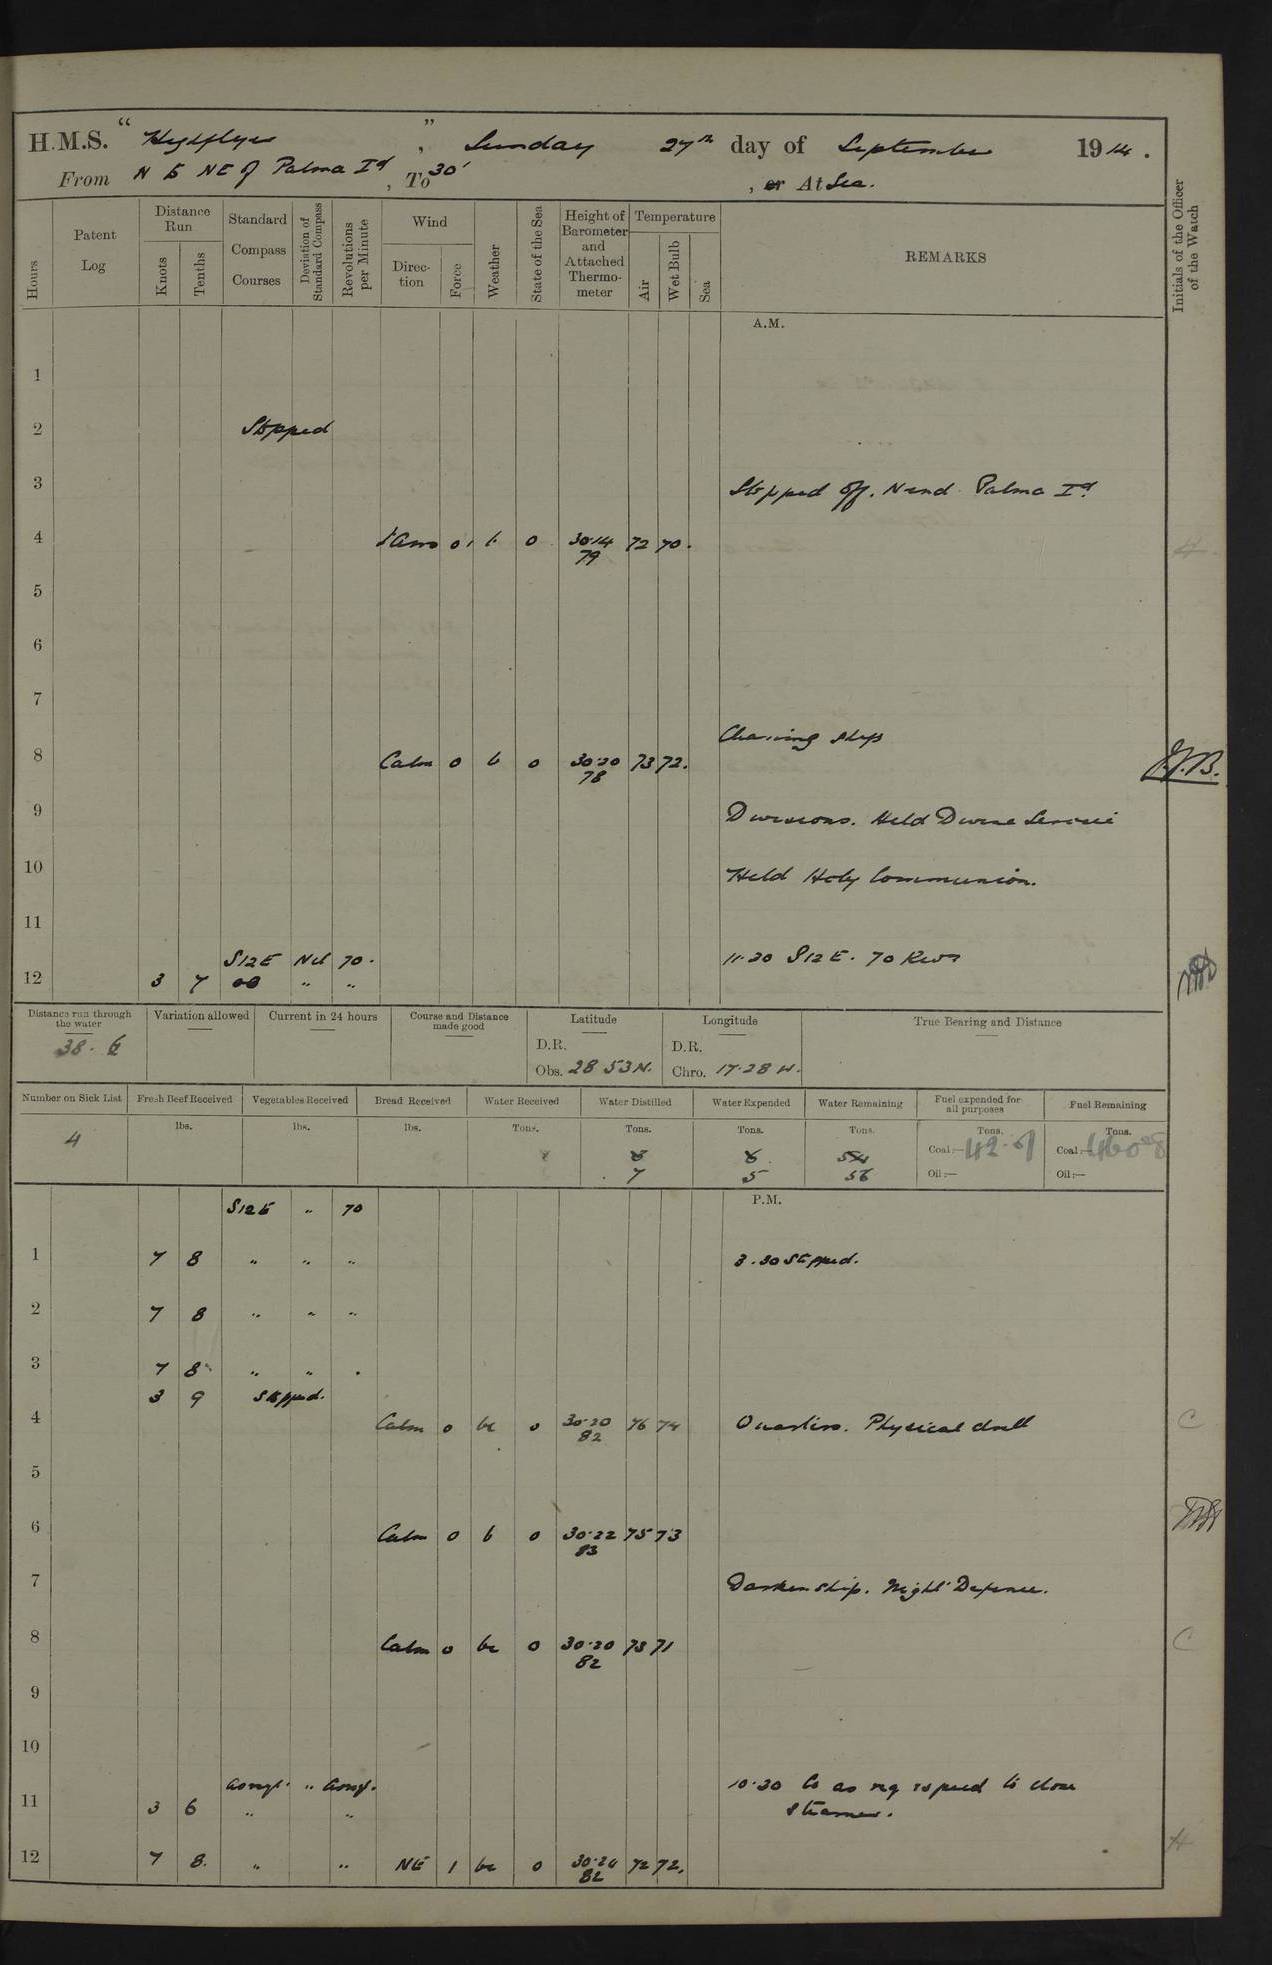 H.M.S. "Highflyer", Sunday 27th day of September 1914.
From N to NE of Palma Id, To 30', or At Sea.
Hours
Patent Log
Distance Run
Knots
Tenths
Standard Compass Courses
Deviation of Standard Compass
Revolutions per Minute
Wind
Direction
Force
Weather
State of the Sea
Height of Barometer and Attached Thermometer
Temperature
Air
Wet Bulb
Sea
REMARKS
Initials of the Officer of the Watch
A.M.
1
2 Stopped
3 Stopped off. N end Palma Id
4 0 b 0 30.14 72 70.
79
5
6
7
Cleaning ship
8 Calm 0 b 0 30.20 73 72. J.J.B.
78
9 Divisions. Held Divine Service
10 Held Holy Communion.
11
S12E Nil 70. 11.30 S12E. 70 Revs
12 3 7 " "
Distance run through the water
38.6
Variation allowed
Current in 24 hours
Course and Distance made good
Latitude
D.R.
Obs. 28 53 N.
Longitude
D.R.
Chro. 17.28 W.
True Bearing and Distance
Number on Sick List
4
Fresh Beef Received
lbs.
Vegetables Received
lbs.
Bread Received
lbs.
Water Received
Tons.
Water Distilled
Tons.
7
Water Expended
Tons.
5
Water Remaining
Tons.
56
Fuel expended for all purposes
Tons.
Coal:— 42.
Oil:—
Fuel Remaining
Tons.
Coal:— 460
Oil:—
P.M.
S12E " 70
1 7 8 " " " 3.30 Stopped.
2 7 8 " " "
3 7 8 " "
3 9 Stopped.
4 Calm 0 bc 0 30.20 76 74 Quarters. Physical drill C
82
5
6 Calm 0 b 0 30.22 75 73
83
7 Darken ship. Night Defence.
8 Calm 0 bc 0 30.20 73 71 C
82
9
10
" 10.30 Co as req & speed to close
11 3 6 " " steamer.
12 7 8 " " NE 1 bc 0 30.20 72 72. H
82